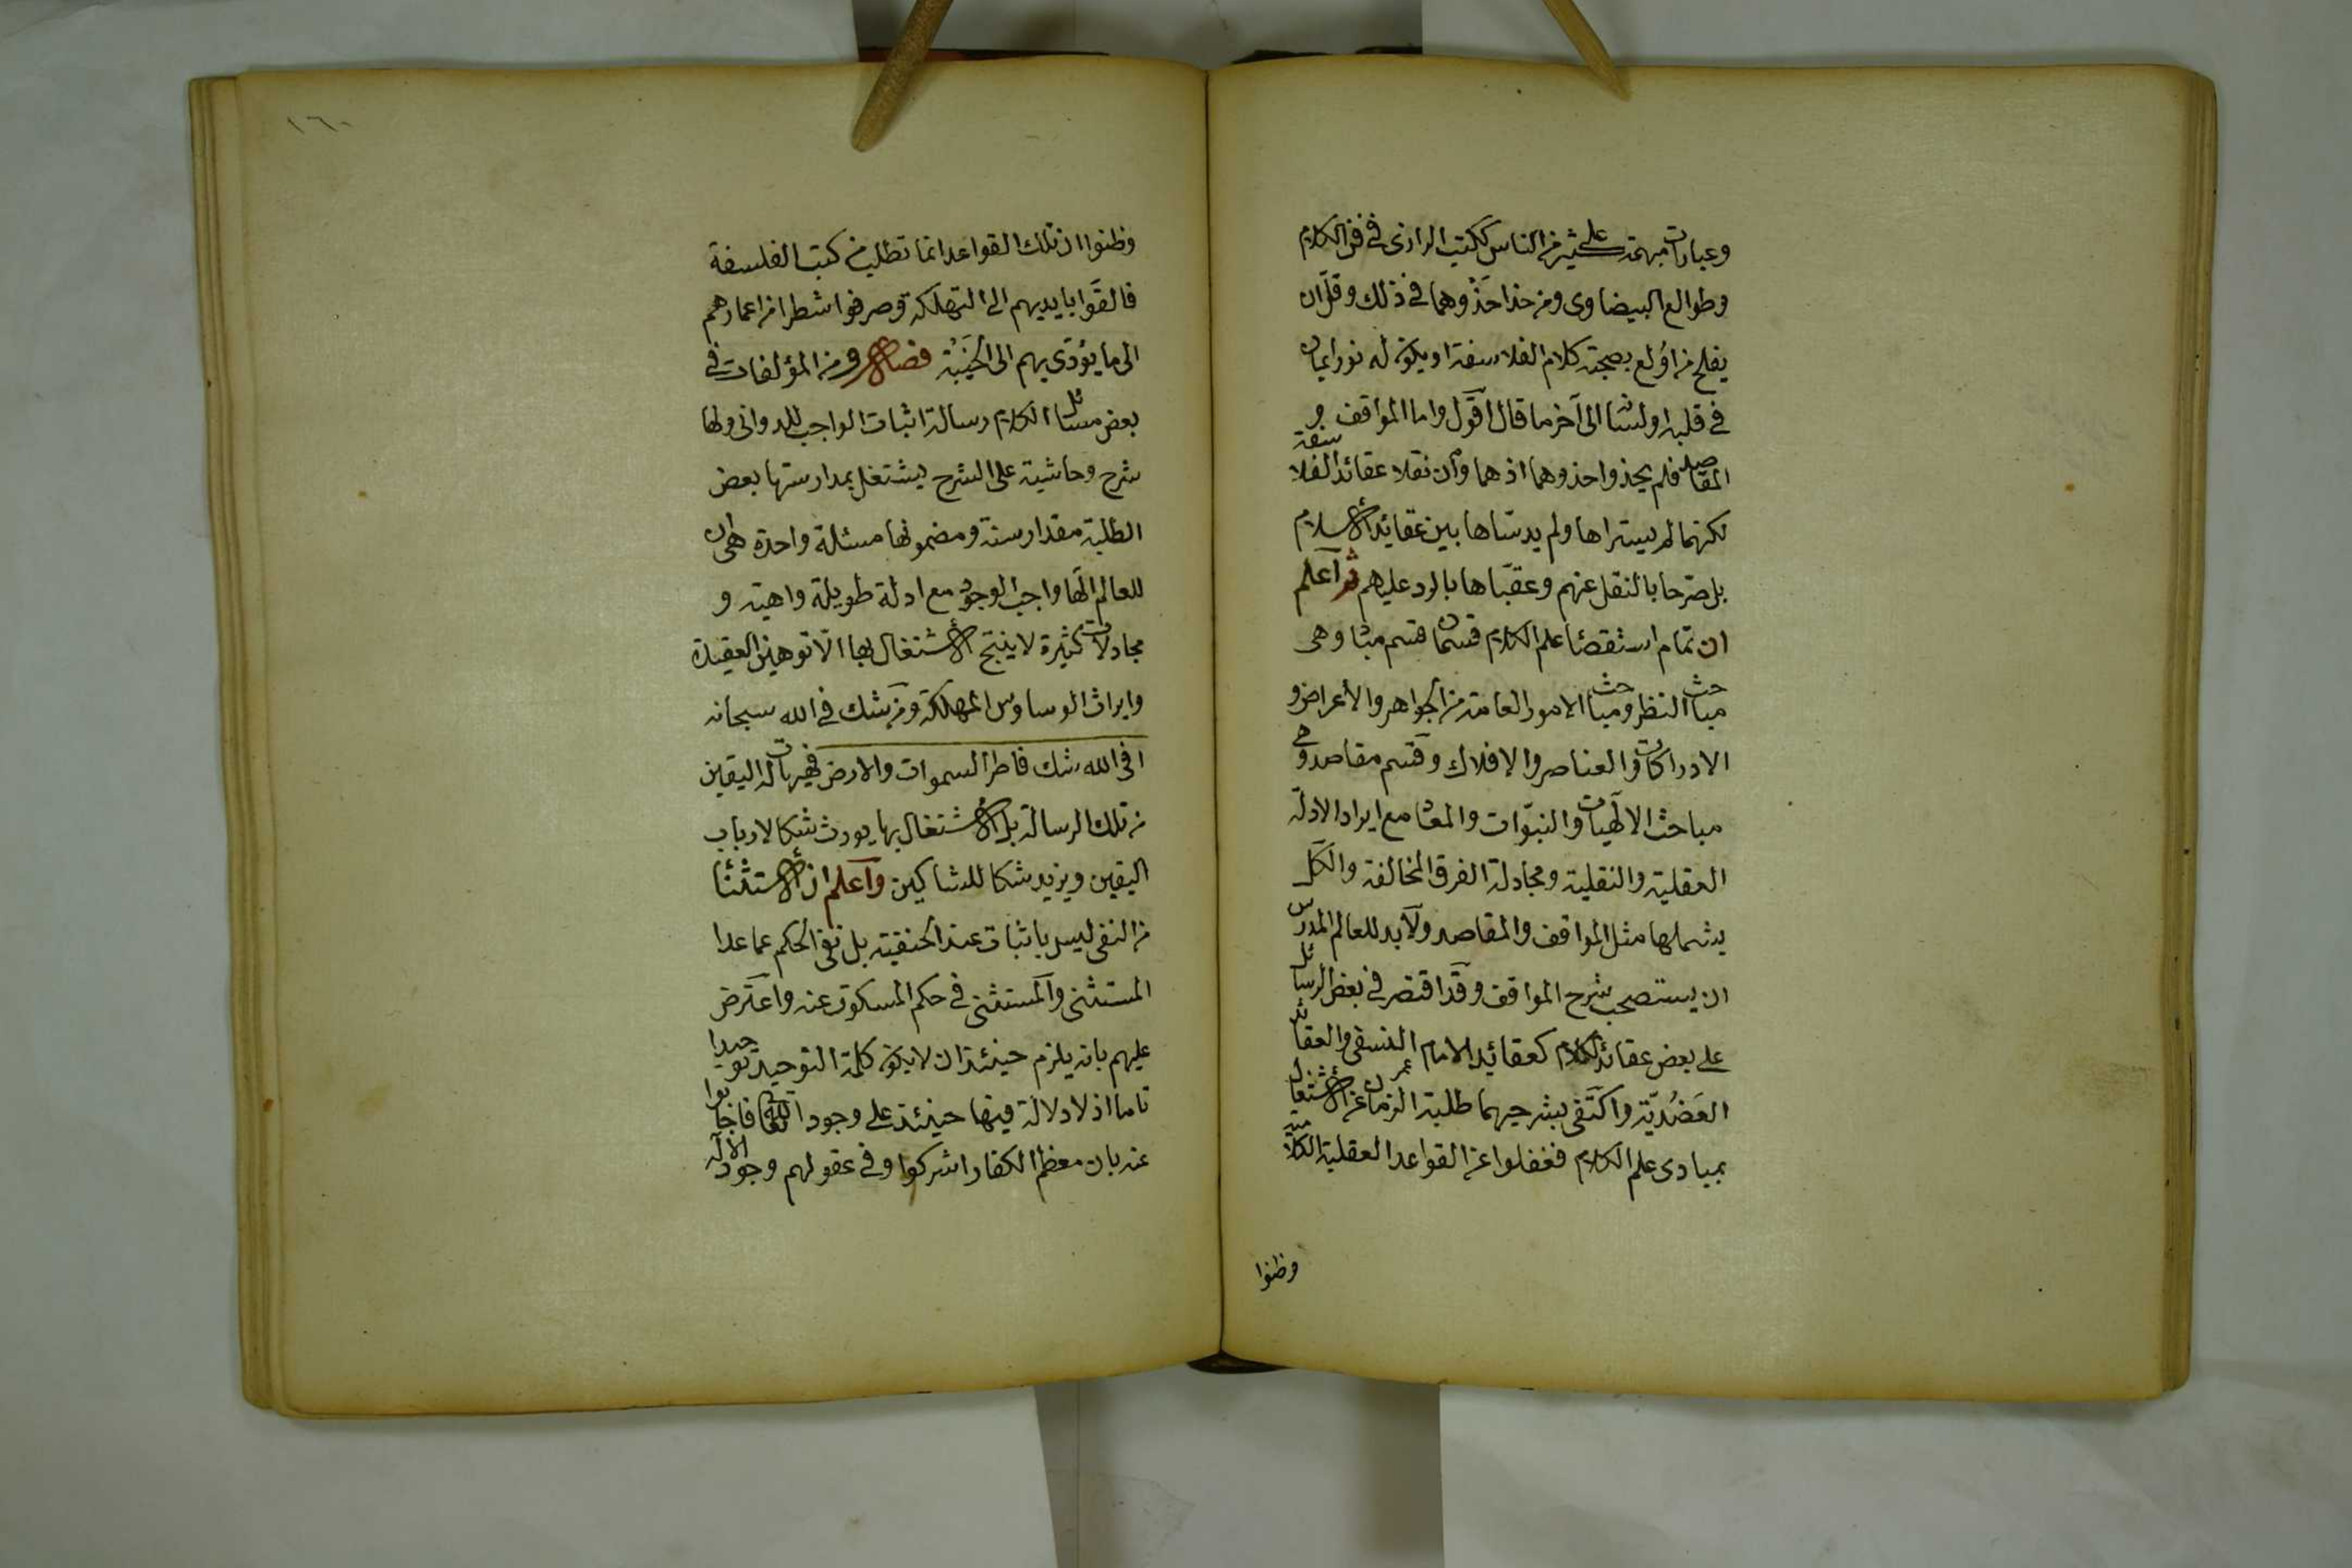 وعبارات مبهمة على كثير من الناس ككتب الرازى فى فن الكلام
وطوالع البيضاوى ومن حذا حذوهما فى ذلك وقل ان
يفلح من اولع بصحبة كلام الفلاسفة او يكون له نور ايمان
فى قلبه او لسانه الى آخر ما قال اقول واما المواقف و
المقاصد فلم يحذوا حذوهما اذ هما وان نقلا عقائد الفلاسفة
لكنهما لم يستراها ولم يدساها بين عقائد الاسلام
بل صرحا بالنقل عنهم وعقباها بالرد عليهم ثم اعلم
ان تمام استقصاء علم الكلام قسمان قسم مبادى وهى
مباحث النظر ومباحث الامور العامة من الجواهر والاعراض و
الادراكات والعناصر والافلاك وقسم مقاصد وهى
مباحث الالهيات والنبوات والمعاد مع ايراد الادلة
العقلية والنقلية ومجادلة الفرق المخالفة والكل
يشملها مثل المواقف والمقاصد ولا بد للعالم المدرس
ان يستصحب شرح المواقف وقد اقتصر فى بعض الرسائل
على بعض عقائد الكلام كعقائد الامام عمر النسفى والعقائد
العضدية واكتفى بشرحيهما طلبة الزمان عن الاشتغال
بمبادى علم الكلام فغفلوا عن القواعد العقلية الكلامية
وظنوا
١٦٠
وظنوا ان تلك القواعد انما تطلب من كتب الفلسفة
فالقوا بايديهم الى التهلكة وصرفوا شطرا من اعمارهم
الى ما يؤدى بهم الى الخيبة ومن المؤلفات فى
بعض مسائل الكلام رسالة اثبات الواجب للدوانى ولها
شرح وحاشية على الشرح يشتغل بمدارستها بعض
الطلبة مقدار سنة ومضمونها مسئلة واحدة هى ان
للعالم الها واجب الوجود مع ادلة طويلة واهية و
مجادلات كثيرة لا ينتج الاشتغال بها الا توهين العقيدة
وايراث الوساوس المهلكة ومن شك فى الله سبحانه
افى الله شك فاطر السموات والارض فهيهات له اليقين
من تلك الرسالة بل الاشتغال بها يورث شكا لارباب
اليقين ويزيد شكا للشاكين واعلم ان الاستثناء
من النفى ليس باثبات عند الحنفية بل نفى الحكم عما عدا
المستثنى والمستثنى فى حكم المسكوت عنه واعترض
عليهم بانه يلزم حينئذ ان لا يكون كلمة التوحيد توحيدا
تاما اذ لا دلالة فيها حينئذ على وجود الله تعالى فاجابوا
عنه بان معظم الكفار اشركوا وفى عقولهم وجود الاله